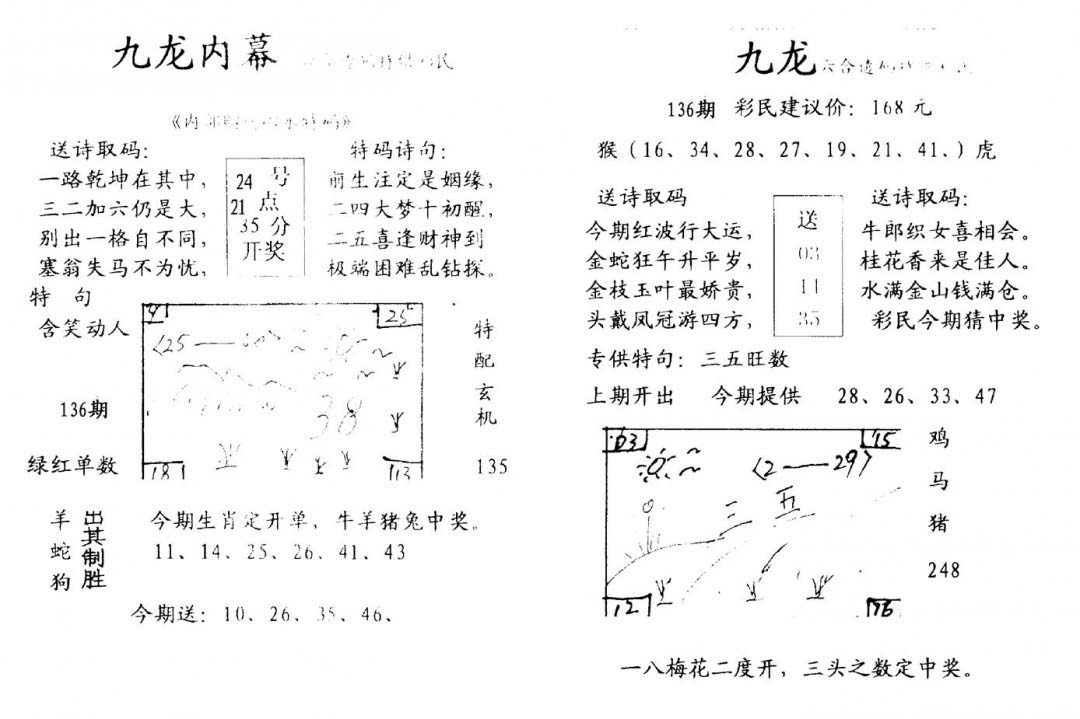 九龙内幕
送诗取码：
一路乾坤在其中，
三二加六仍是大，
别出一格自不同，
塞翁失马不为忧，
24 号
21 点
35 分
开奖
特码诗句：
前生注定是姻缘，
二四大梦十初醒，
二五喜逢财神到
极端困难乱钻探。
特 句
含笑动人
136期
绿红单数
25
〈25——
38
18
113
特配玄机
135
羊蛇狗
出其制胜
今期生肖定开单，牛羊猪兔中奖。
11、14、25、26、41、43
今期送：10、26、35、46、
九龙
136期 彩民建议价：168元
猴（16、34、28、27、19、21、41、）虎
送诗取码
今期红波行大运，
金蛇狂午升平岁，
金枝玉叶最娇贵，
头戴凤冠游四方，
送
03
11
35
送诗取码：
牛郎织女喜相会。
桂花香来是佳人。
水满金山钱满仓。
彩民今期猜中奖。
专供特句：三五旺数
上期开出 今期提供 28、26、33、47
63
15
〈2——29〉
三 五
12
16
鸡
马
猪
248
一八梅花二度开，三头之数定中奖。